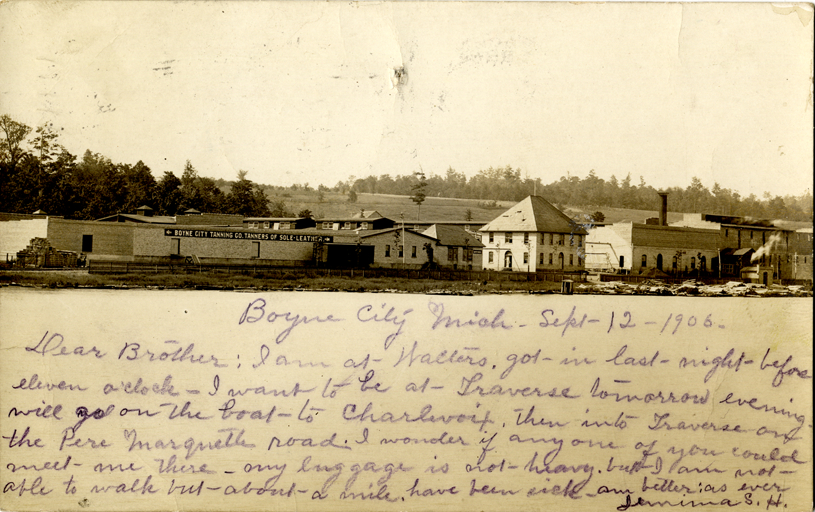 BOYNE CITY TANNING CO. TANNERS OF SOLE-LEATHER
Boyne City Mich- Sept-12-1906.
Dear Brother; I am at-Walters. got-in last-night-before
eleven o'clock-I want to be at-Traverse tomorrow evening-
will go on the boat-to Charlevoix, then into Traverse on
the Pere Marquette road. I wonder if any one of you could
meet-me there-my luggage is not-heavy. but-I am not-
able to walk but-about-a mile. have been sick-am better; as ever
Jemima S. H.